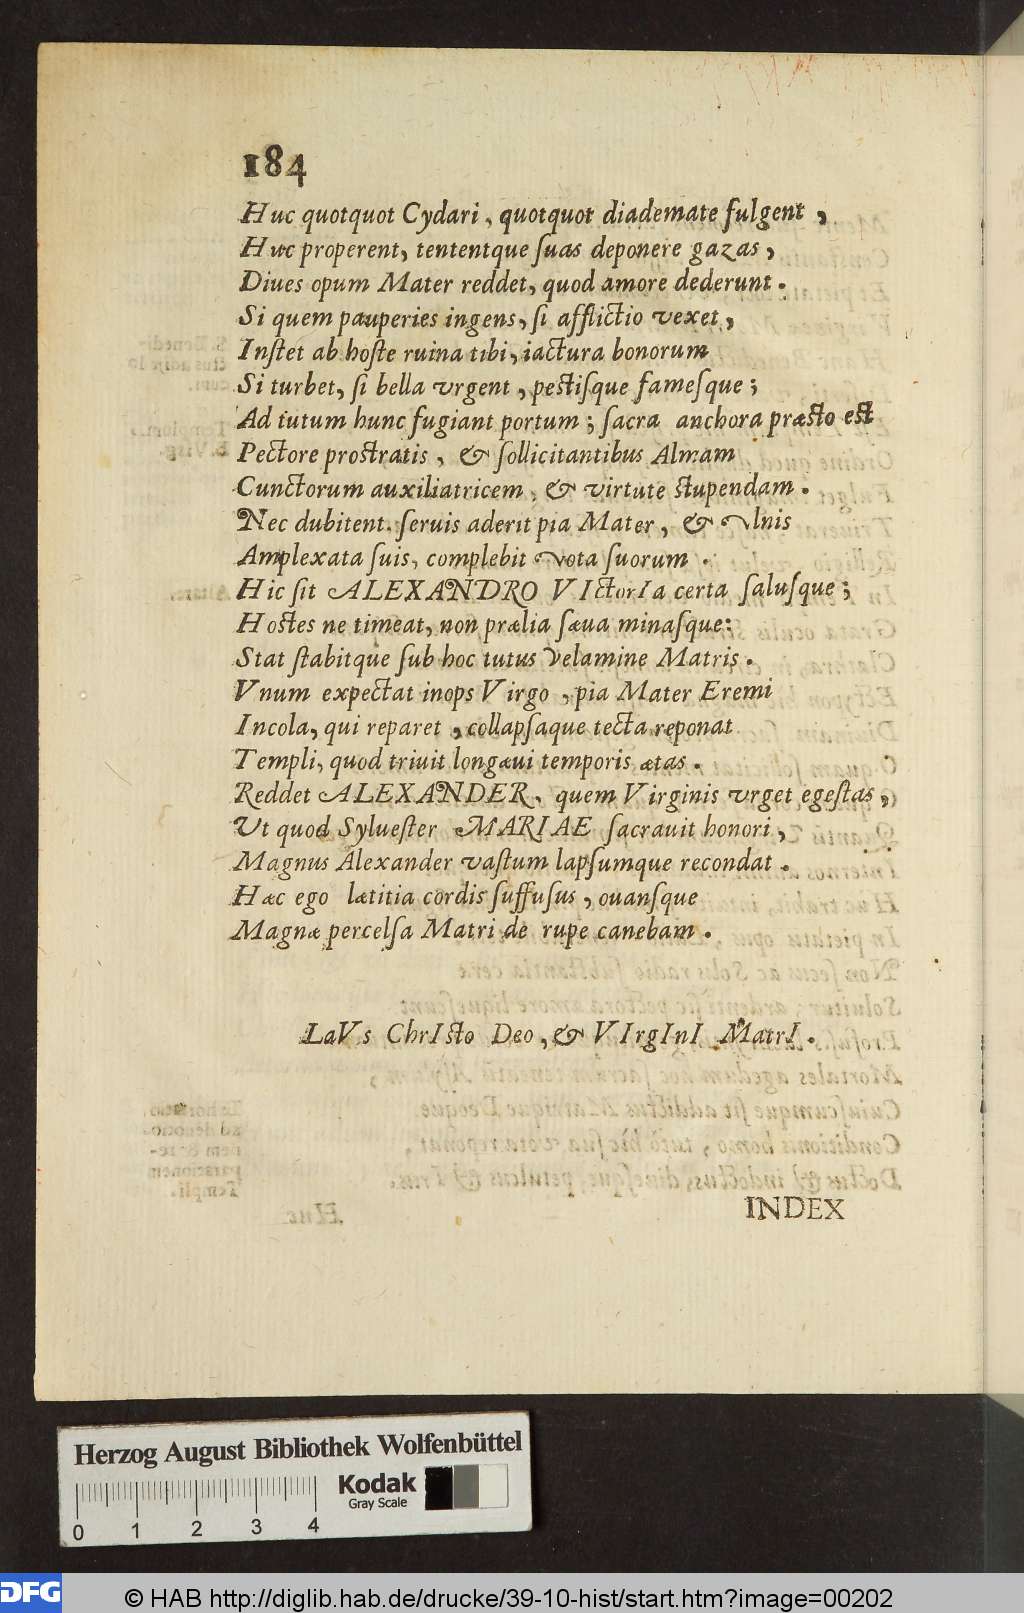 184
Huc quotquot Cydari, quotquot diademate fulgent,
Huc properent, tententque ſuas deponere gazas,
Diues opum Mater reddet, quod amore dederunt.
Si quem pauperies ingens, ſi afflictio vexet,
Inſtet ab hoſte ruina tibi, iactura bonorum
Si turbet, ſi bella vrgent, peſtiſque fameſque;
Ad tutum hunc fugiant portum; ſacra anchora præſto eſt
Pectore proſtratis, & ſollicitantibus Almam
Cunctorum auxiliatricem, & virtute ſtupendam.
Nec dubitent. ſeruis aderit pia Mater, & vlnis
Amplexata ſuis, complebit vota ſuorum.
Hic ſit ALEXANDRO VIctorIa certa ſaluſque;
Hoſtes ne timeat, non prælia ſæua minaſque:
Stat ſtabitque ſub hoc tutus velamine Matris.
Vnum expectat inops Virgo, pia Mater Eremi
Incola, qui reparet, collapſaque tecta reponat
Templi, quod triuit longæui temporis ætas.
Reddet ALEXANDER, quem Virginis vrget egeſtas,
Vt quod Sylueſter MARIAE ſacrauit honori,
Magnus Alexander vaſtum lapſumque recondat.
Hæc ego lætitia cordis ſuffuſus, ouanſque
Magnæ percelſa Matri de rupe canebam.
LaVs ChrIſto Deo, & VIrgInI MatrI.
INDEX
Herzog August Bibliothek Wolfenbüttel
Kodak
Gray Scale
0 1 2 3 4
DFG © HAB http://diglib.hab.de/drucke/39-10-hist/start.htm?image=00202